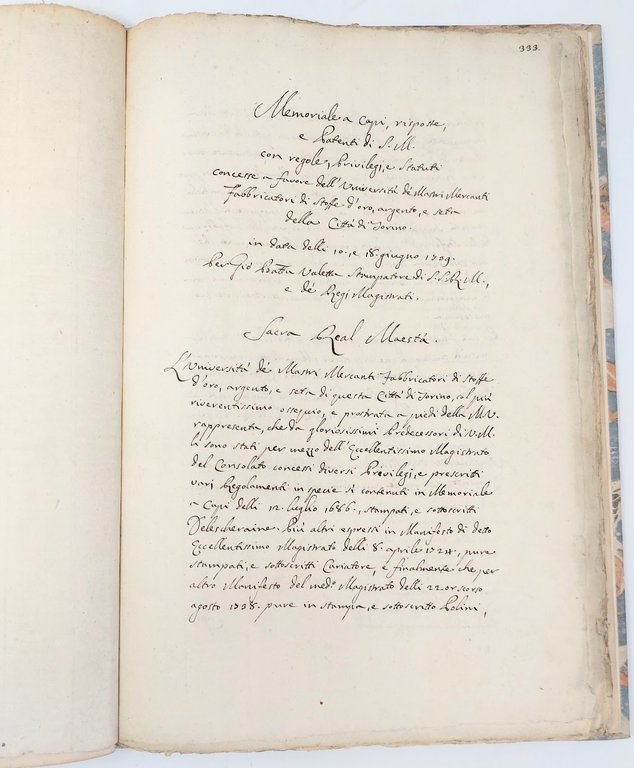 333.
Memoriale a Capi, risposte,
e Patenti di S. M.
con regole, Privilegi, e Statuti
concesse a favore dell'Università de' Mastri Mercanti
Fabbricatori di Stoffe d'oro, argento, e seta
della Città di Torino.
in data delli 10., e 18. giugno 1739.
Per Gio Batta Valetta Stampatore di S. S. R. M.,
e de' Regj Magistrati.
Sacra Real Maestà.
L'Università de' Mastri Mercanti Fabbricatori di Stoffe
d'oro, argento, e seta di questa Città di Torino, col più
riverentissimo ossequio, e prostrata a piedi della M. V.
rappresenta, che da gloriosissimi Predecessori di V. M.
là sono stati per mezzo dell'Eccellentissimo Magistrato
del Consolato concessi diversi Privilegi, e prescritti
varj Regolamenti in specie sì contenuti in Memoriale
a Capi delli 12. luglio 1686., stampati, e sottoscritti
Delescheraine. Più altri espressi in Manifesto di detto
Eccellentissimo Magistrato delli 8. aprile 1724., pure
stampati, e sottoscritti Cariatore, e finalmente che per
altro Manifesto del med.º Magistrato delli 22. or scorso
agosto 1738. pure in stampa, e sottoscritto Polini,